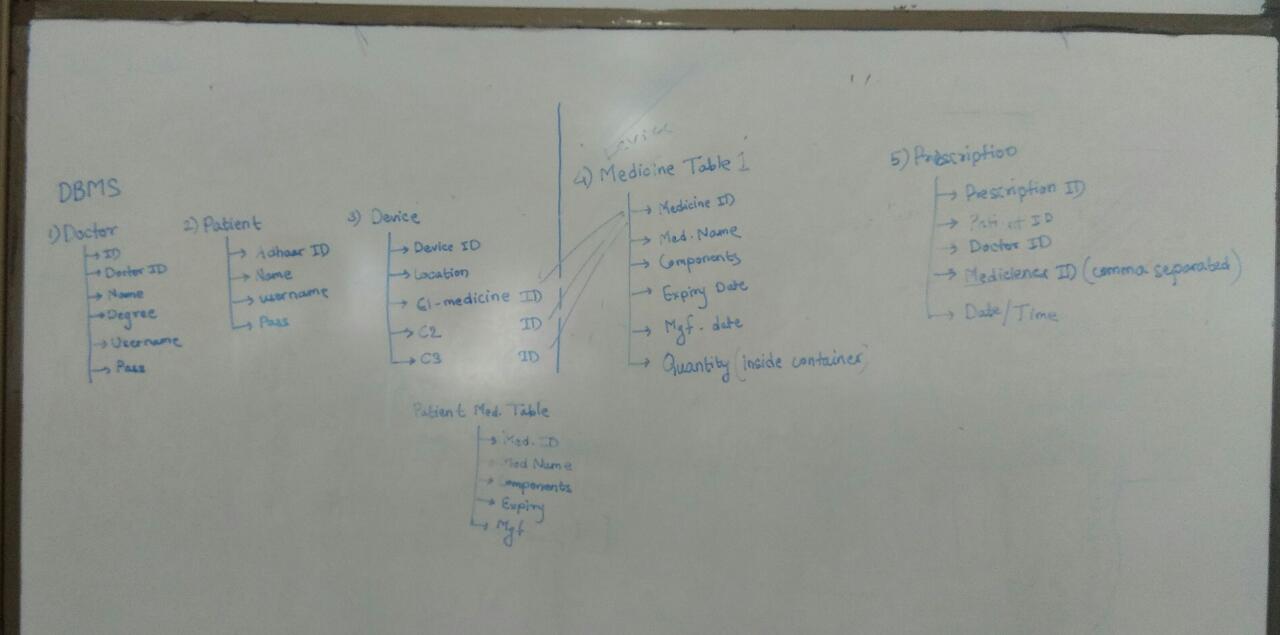 DBMS
1) Doctor
ID
Doctor ID
Name
Degree
Username
Pass
2) Patient
Adhaar ID
Name
username
Pass
3) Device
Device ID
Location
C1-medicine ID
C2 ID
C3 ID
Device
4) Medicine Table 1
Medicine ID
Med. Name
Components
Expiry Date
Mgf. date
Quantity (inside container)
5) Prescription
Prescription ID
Patient ID
Doctor ID
Medicienes ID (comma separated)
Date/Time
Patient Med. Table
Med. ID
Med Name
Components
Expiry
Mgf